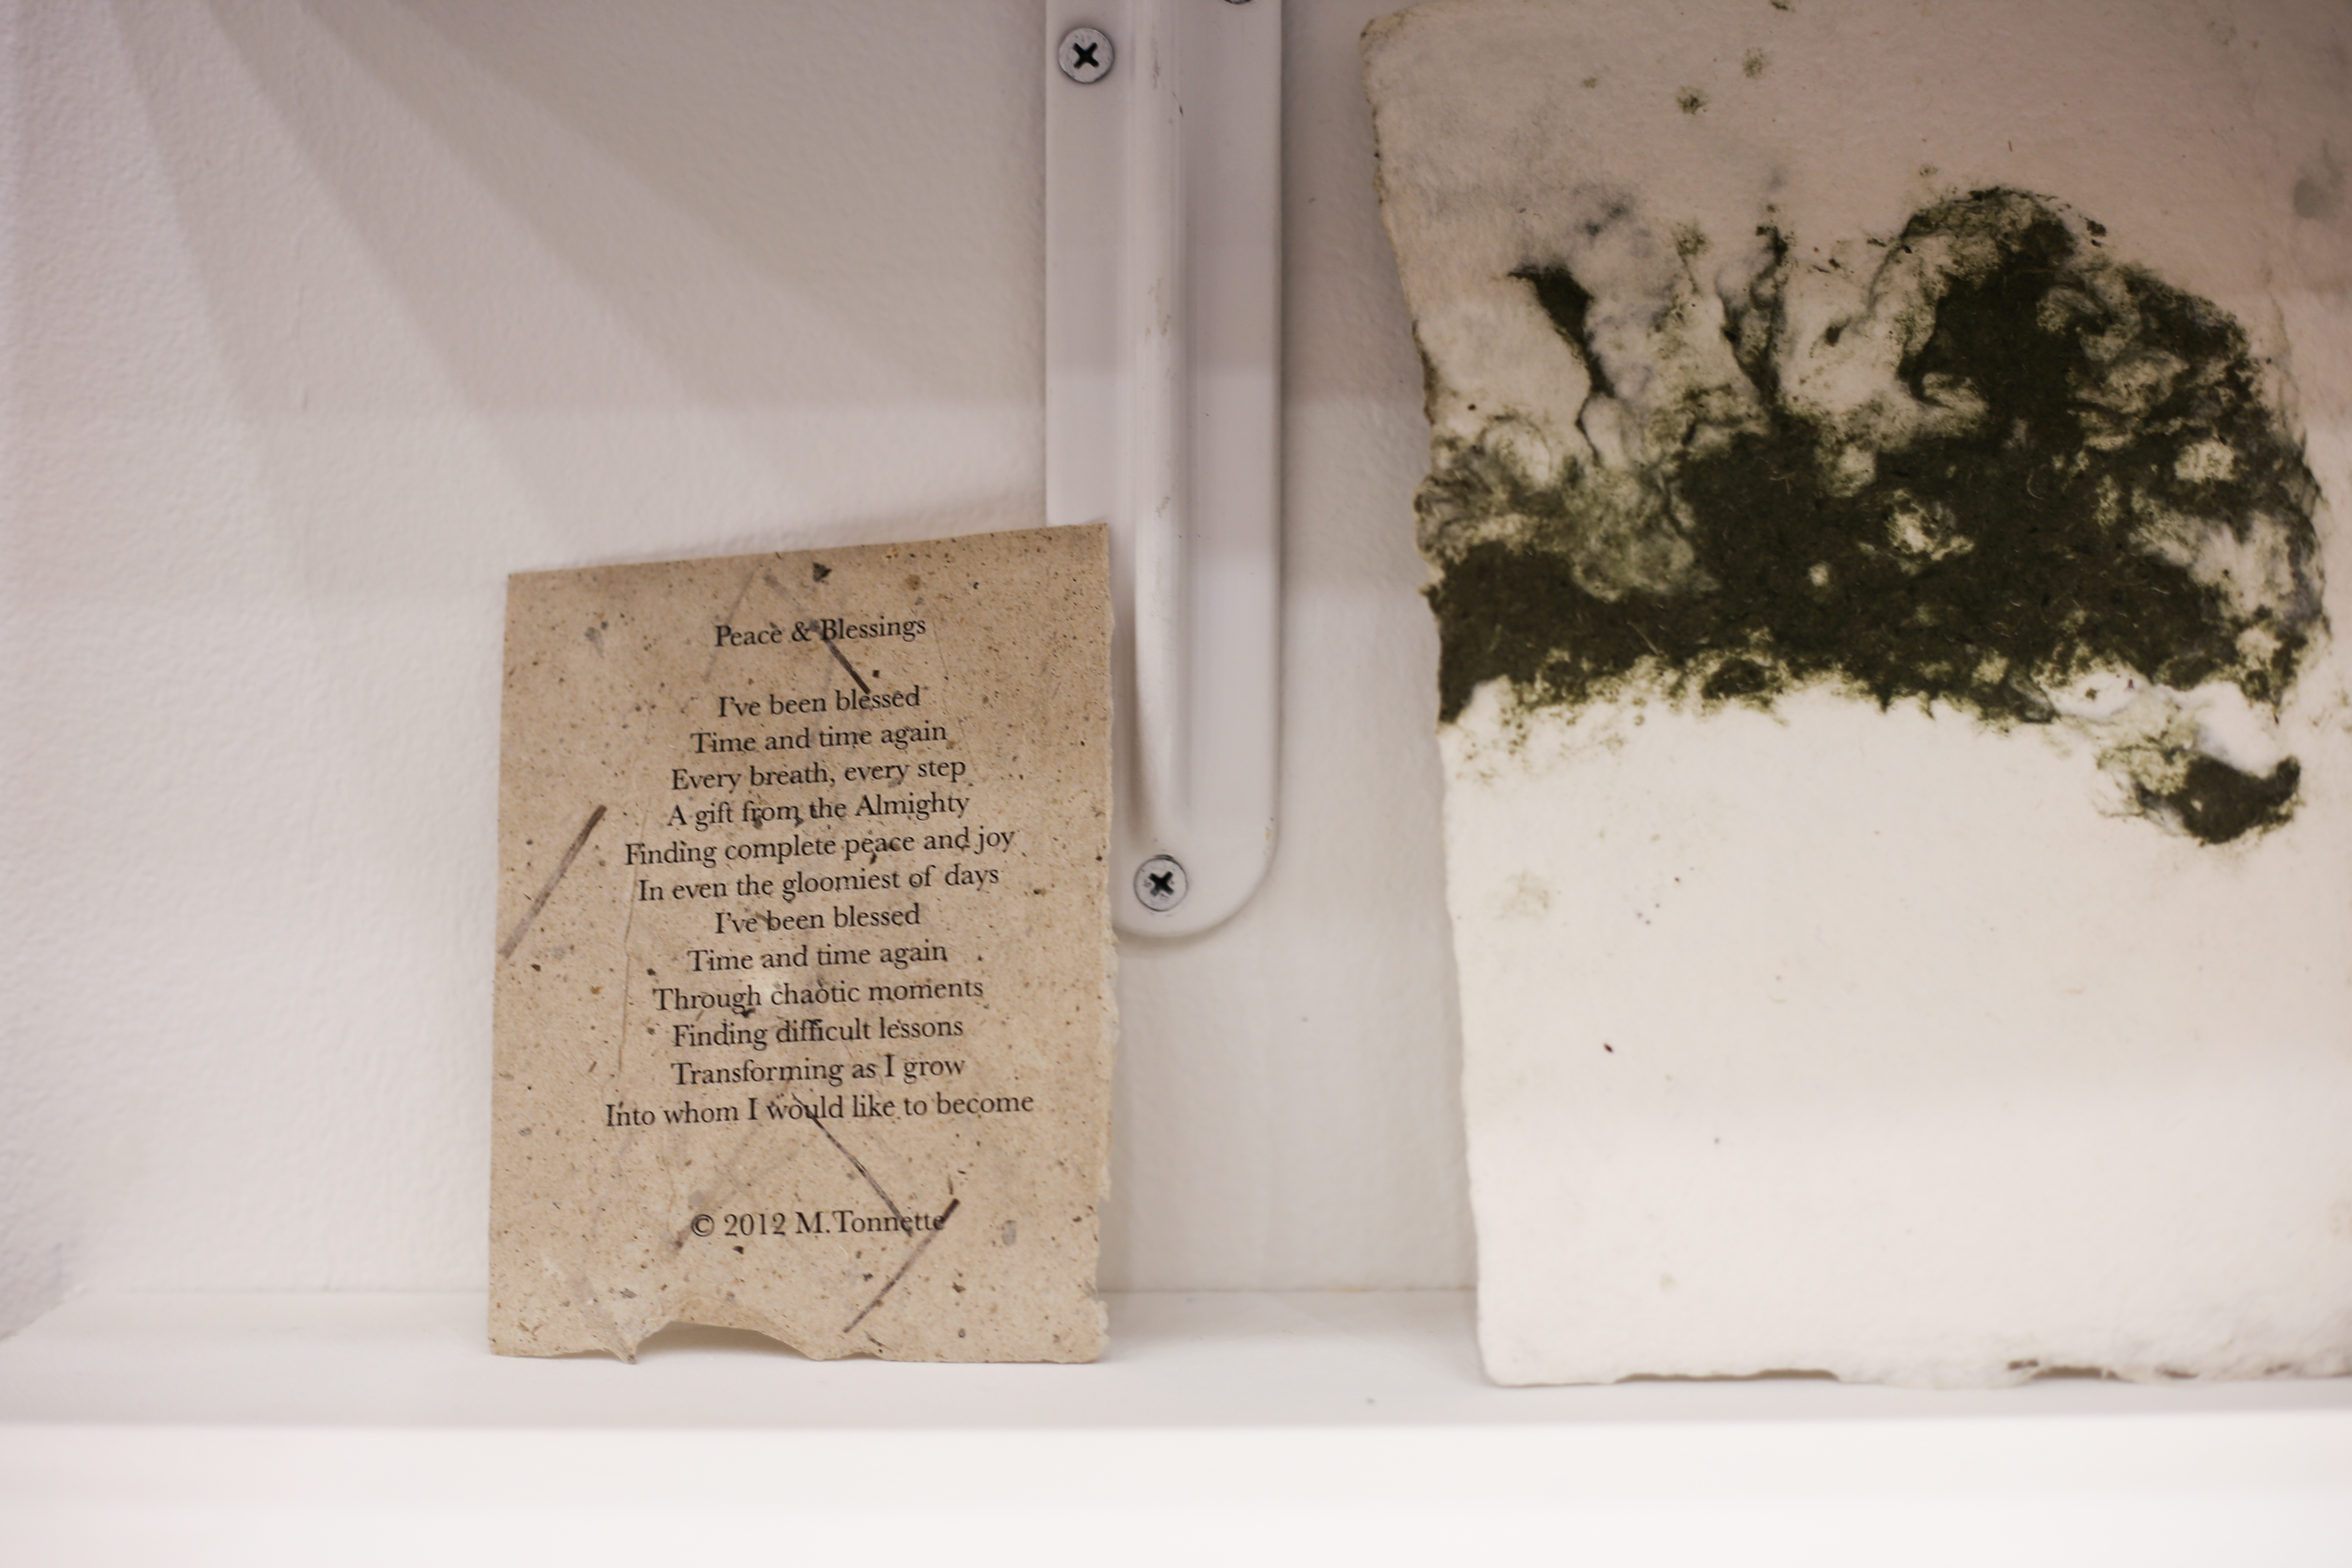 Peace & Blessings
I've been blessed
Time and time again
Every breath, every step
A gift from the Almighty
Finding complete peace and joy
In even the gloomiest of days
I've been blessed
Time and time again
Through chaotic moments
Finding difficult lessons
Transforming as I grow
Into whom I would like to become
© 2012 M.Tonnette